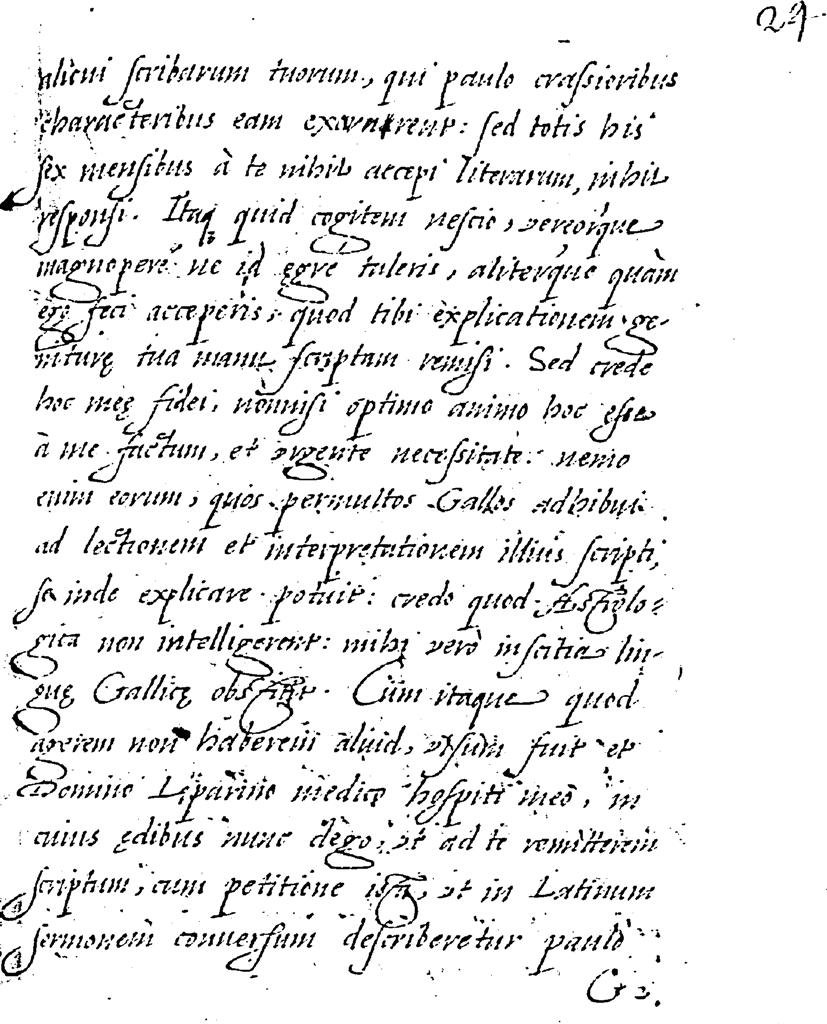 29
alicui scribarum tuorum, qui paulo crassioribus
characteribus eam exornarent: sed totis his
sex mensibus à te nihil accepi literarum, nihil
responsi. Itaq quid cogitem nescio, vereorque
magnopere ne id ęgre tuleris, aliterque quàm
ego feci acceperis, quod tibi explicationem ge-
niturę tua manu scriptam remisi. Sed crede
hoc meę fidei, nonnisi optimo animo hoc esse
à me factum, et urgente necessitate: nemo
enim eorum, quos permultos Gallos adhibui
ad lectionem et interpretationem illius scripti,
se inde explicare potuit: credo quod Astrolo-
gica non intelligerent: mihi verò inscitia lin-
guę Gallicę obstitit. Cùm itaque quod
agerem non haberem aliud, visum fuit et
Domino Liparino medico hospiti meo, in
cuius ędibus nunc dego, ut ad te remitterem
scriptum, cum petitione ista, ut in Latinum
sermonem conversum describeretur paulò
G 2.